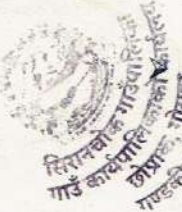 सिरानचोक गाउँपालिका
गाउँ कार्यपालिकाको कार्यालय
छोप्राक, गोरखा
गण्डकी